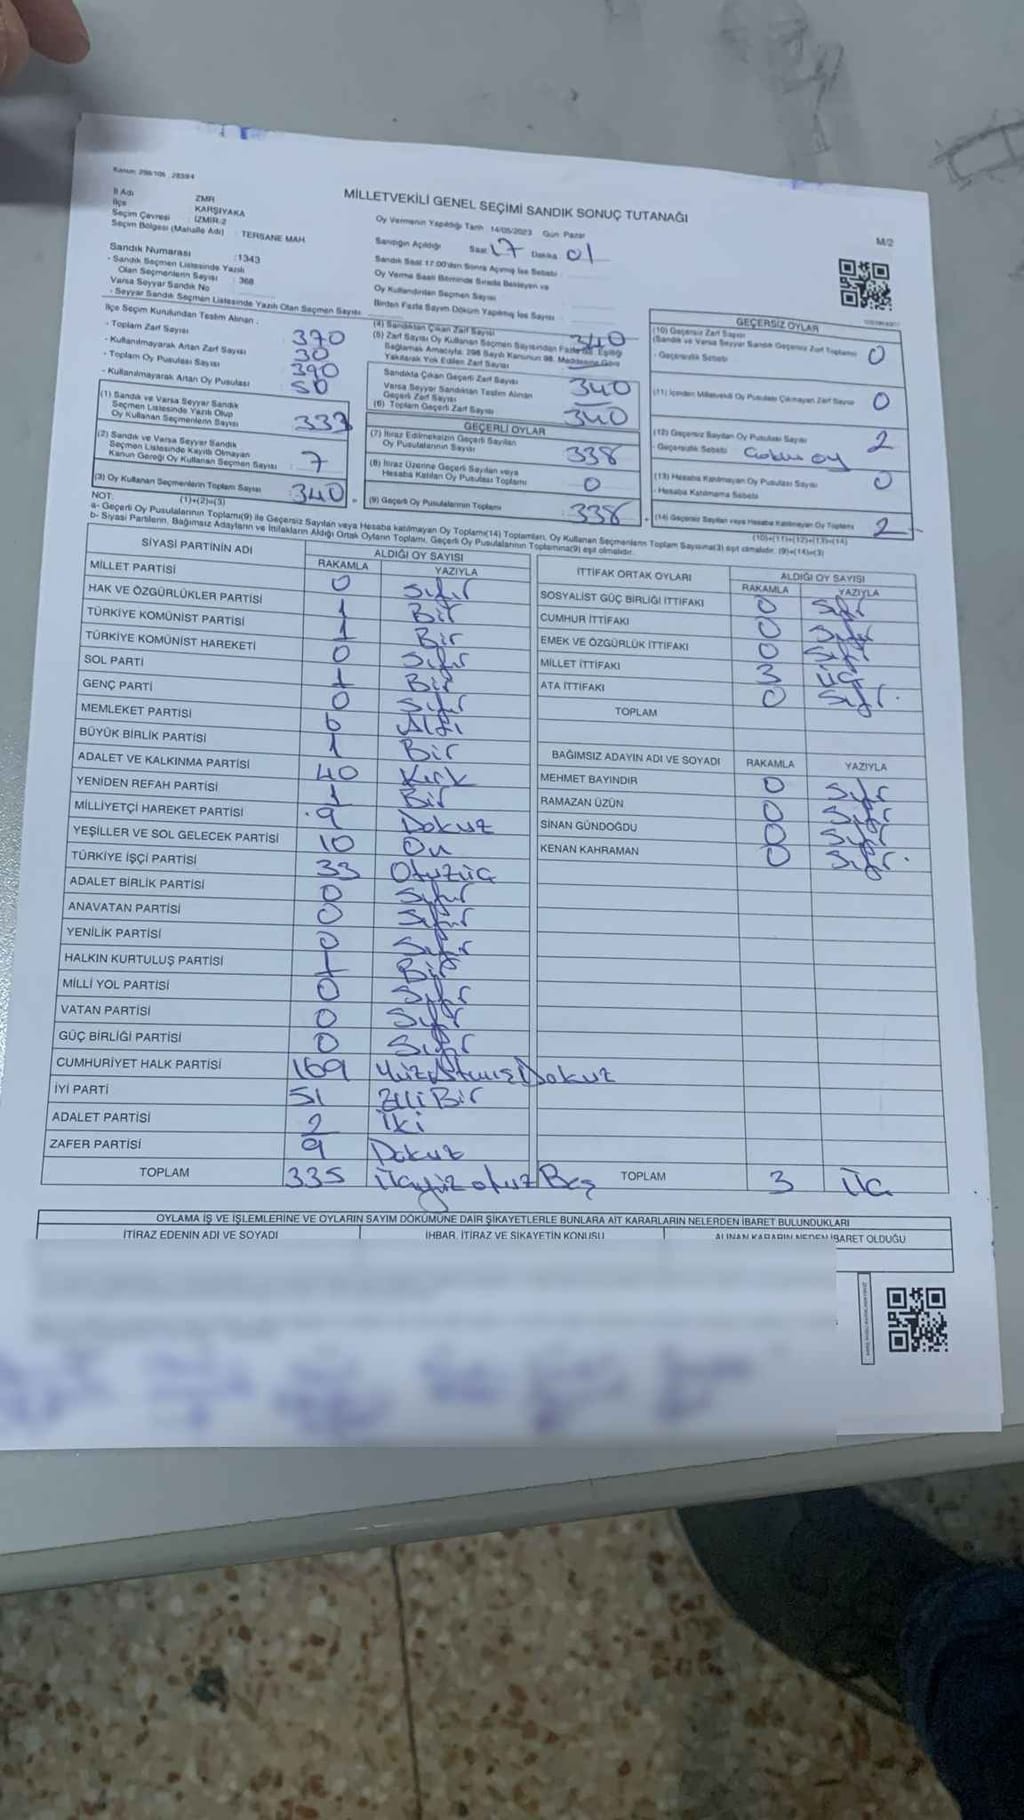 Kanun: 298/105 , 2839/4
MİLLETVEKİLİ GENEL SEÇİMİ SANDIK SONUÇ TUTANAĞI
M/2
İl Adı ZMR
İlçe KARŞIYAKA
Seçim Çevresi : İZMİR-2
Seçim Bölgesi (Mahalle Adı) : TERSANE MAH
Sandık Numarası :1343
- Sandık Seçmen Listesinde Yazılı
Olan Seçmenlerin Sayısı : 368
Varsa Seyyar Sandık No
- Seyyar Sandık Seçmen Listesinde Yazılı Olan Seçmen Sayısı
Oy Vermenin Yapıldığı Tarih 14/05/2023 Gün Pazar
Sandığın Açıldığı Saat 17 Dakika 01
Sandık Saat 17.00'den Sonra Açılmış İse Sebebi
Oy Verme Saati Bitiminde Sırada Bekleyen ve
Oy Kullandırılan Seçmen Sayısı
Birden Fazla Sayım Döküm Yapılmış İse Sayısı
İlçe Seçim Kurulundan Teslim Alınan :
- Toplam Zarf Sayısı 370
- Kullanılmayarak Artan Zarf Sayısı 30
- Toplam Oy Pusulası Sayısı 390
- Kullanılmayarak Artan Oy Pusulası 50
(1) Sandık ve Varsa Seyyar Sandık
Seçmen Listesinde Yazılı Olup
Oy Kullanan Seçmenlerin Sayısı 333
(2) Sandık ve Varsa Seyyar Sandık
Seçmen Listesinde Kayıtlı Olmayan
Kanun Gereği Oy Kullanan Seçmen Sayısı 7
(3) Oy Kullanan Seçmenlerin Toplam Sayısı 340
(1)+(2)=(3)
(4) Sandıktan Çıkan Zarf Sayısı 340
(5) Zarf Sayısı Oy Kullanan Seçmen Sayısından Fazla İse, Eşitliği
Sağlamak Amacıyla, 298 Sayılı Kanunun 98. Maddesine Göre
Yakılarak Yok Edilen Zarf Sayısı
Sandıkta Çıkan Geçerli Zarf Sayısı 340
Varsa Seyyar Sandıktan Teslim Alınan
Geçerli Zarf Sayısı
(6) Toplam Geçerli Zarf Sayısı 340
GEÇERLİ OYLAR
(7) İtiraz Edilmeksizin Geçerli Sayılan
Oy Pusulalarının Sayısı 338
(8) İtiraz Üzerine Geçerli Sayılan veya
Hesaba Katılan Oy Pusulası Toplamı 0
(9) Geçerli Oy Pusulalarının Toplamı 338
GEÇERSİZ OYLAR
(10) Geçersiz Zarf Sayısı
(Sandık ve Varsa Seyyar Sandık Geçersiz Zarf Toplamı) 0
- Geçersizlik Sebebi
(11) İçinden Milletvekili Oy Pusulası Çıkmayan Zarf Sayısı 0
(12) Geçersiz Sayılan Oy Pusulası Sayısı 2
- Geçersizlik Sebebi oy
(13) Hesaba Katılmayan Oy Pusulası Sayısı 0
- Hesaba Katılmama Sebebi
(14) Geçersiz Sayılan veya Hesaba Katılmayan Oy Toplamı 2
(10)+(11)+(12)+(13)=(14)
NOT:
a- Geçerli Oy Pusulalarının Toplamı(9) ile Geçersiz Sayılan veya Hesaba katılmayan Oy Toplamı(14) Toplamları, Oy Kullanan Seçmenlerin Toplam Sayısına(3) eşit olmalıdır. (9)+(14)=(3)
b- Siyasi Partilerin, Bağımsız Adayların ve İttifakların Aldığı Ortak Oyların Toplamı, Geçerli Oy Pusulalarının Toplamına(9) eşit olmalıdır.
SİYASİ PARTİNİN ADI ALDIĞI OY SAYISI
RAKAMLA YAZIYLA
MİLLET PARTİSİ 0 Sıfır
HAK VE ÖZGÜRLÜKLER PARTİSİ 1 Bir
TÜRKİYE KOMÜNİST PARTİSİ 1 Bir
TÜRKİYE KOMÜNİST HAREKETİ 0 Sıfır
SOL PARTİ 1 Bir
GENÇ PARTİ 0 Sıfır
MEMLEKET PARTİSİ 6 Altı
BÜYÜK BİRLİK PARTİSİ 1 Bir
ADALET VE KALKINMA PARTİSİ 40 Kırk
YENİDEN REFAH PARTİSİ 1 Bir
MİLLİYETÇİ HAREKET PARTİSİ 9 Dokuz
YEŞİLLER VE SOL GELECEK PARTİSİ 10 On
TÜRKİYE İŞÇİ PARTİSİ 33 Otuzüç
ADALET BİRLİK PARTİSİ 0 Sıfır
ANAVATAN PARTİSİ 0 Sıfır
YENİLİK PARTİSİ 0 Sıfır
HALKIN KURTULUŞ PARTİSİ 1 Bir
MİLLİ YOL PARTİSİ 0 Sıfır
VATAN PARTİSİ 0 Sıfır
GÜÇ BİRLİĞİ PARTİSİ 0 Sıfır
CUMHURİYET HALK PARTİSİ 169 YüzAtmışDokuz
İYİ PARTİ 51 Elli Bir
ADALET PARTİSİ 2 İki
ZAFER PARTİSİ 9 Dokuz
TOPLAM 335 Üçyüz otuz Beş
İTTİFAK ORTAK OYLARI ALDIĞI OY SAYISI
RAKAMLA YAZIYLA
SOSYALİST GÜÇ BİRLİĞİ İTTİFAKI 0 Sıfır
CUMHUR İTTİFAKI 0 Sıfır
EMEK VE ÖZGÜRLÜK İTTİFAKI 0 Sıfır
MİLLET İTTİFAKI 3 Üç
ATA İTTİFAKI 0 Sıfır.
TOPLAM
BAĞIMSIZ ADAYIN ADI VE SOYADI RAKAMLA YAZIYLA
MEHMET BAYINDIR 0 Sıfır
RAMAZAN ÜZÜN 0 Sıfır
SİNAN GÜNDOĞDU 0 Sıfır
KENAN KAHRAMAN 0 Sıfır.
TOPLAM 3 Üç
OYLAMA İŞ VE İŞLEMLERİNE VE OYLARIN SAYIM DÖKÜMÜNE DAİR ŞİKAYETLERLE BUNLARA AİT KARARLARIN NELERDEN İBARET BULUNDUKLARI
İTİRAZ EDENİN ADI VE SOYADI İHBAR, İTİRAZ VE ŞİKAYETİN KONUSU ALINAN KARARIN NEDEN İBARET OLDUĞU